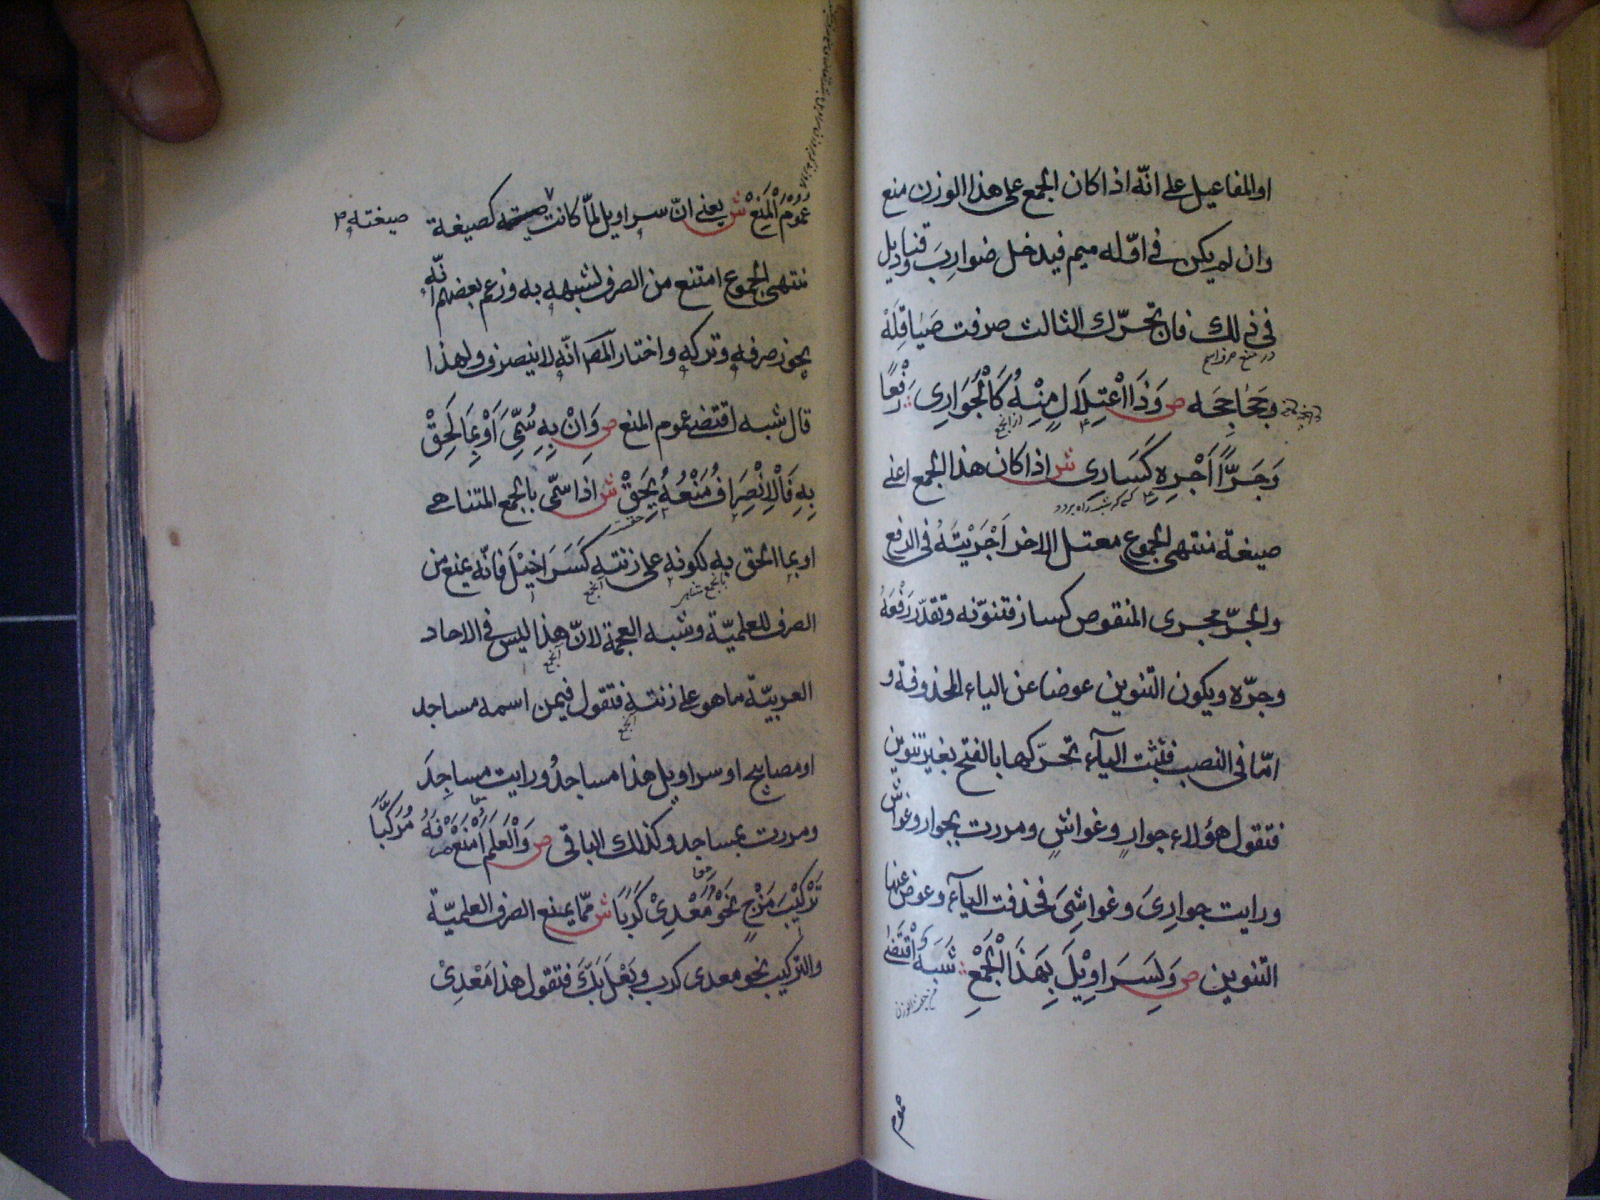 او المفاعيل على انّه اذا كان الجمع على هذا الوزن منع
وان لم يكن فى اوّله ميم فيدخل ضوارب وقناديل
فى ذلك فان تحرّك الثالث صرفت صَيٰاقِلَهْ
وجَحٰاجِحَه ص وَذَا اعْتِلَالٍ مِنْهُ كَالْجَوَارِى رَفْعًا
وَجَرًّا اَجْرِهِ كَسَارِى ش اذا كان هذا الجمع اعنى
صيغة منتهى الجموع معتل الاخر اَجْرَيْتَهُ فى الرفع
والجرّ مجرى المنقوص كسار فتنوّنه وتقدّر رَفْعَهُ
وجرّه ويكون التنوين عوضا عن الياء المحذوفة و
امّا فى النصب فتثبت اليآء تحرّكها بالفتح بغير تنوين
فتقول هؤلاء جوارٍ وغواشٍ ومررت بجوار وغواشٍ
ورايت جوارِىَ وغواشِىَ فحذفت اليآء وعوض عنها
التنوين ص وَلِسَرَاوِيْلَ بِهَذَا الْجَمْعِ شَبَهٌ اقْتَضٰى
عموم
عُمُوْمَ الْمَنِعْ ش يعنى انّ سراويل لمّا كانت صيغته كصيغة
منتهى الجموع امتنع من الصرف لشبهه به وزعم بعضهم انّه
يجوز صرفه وتركه واختار المص انّه لا ينصرف ولهذا
قال شبه اقتضى عموم المنع ص وَاِنْ بِهِ سُمِّىَ اَوْ بِمَا لَحِقْ
بِهِ فَالْاِنْصِرَافُ مَنْعُهُ يَحِقْ ش اذا سمّى بالجمع المتناهى
او بما الحق به لكونه على زنته كَسَرَاحِيْلَ فانّه يمنع من
الصرف للعلميّة وشبه العجمة لانّ هذا ليس فى الاحاد
العربيّة ما هو على زنته فتقول فيمن اسمه مساجد
او مصابيح او سراويل هذا مساجدُ ورايت مساجِدَ
ومررت بمساجد وكذلك الباقى ص وَالْعَلَمَ امْنَعْ صَرْفَهُ مُرَكَّبًا
تَرْكِيْبَ مَزْجٍ نَحْوُ مَعْدِىْ كَرِبَا ش ممّا يمنع الصرف العلميّة
والتركيب نحو معدى كرب وبَعْلَبَكَّ فتقول هذا مَعْدِىْ